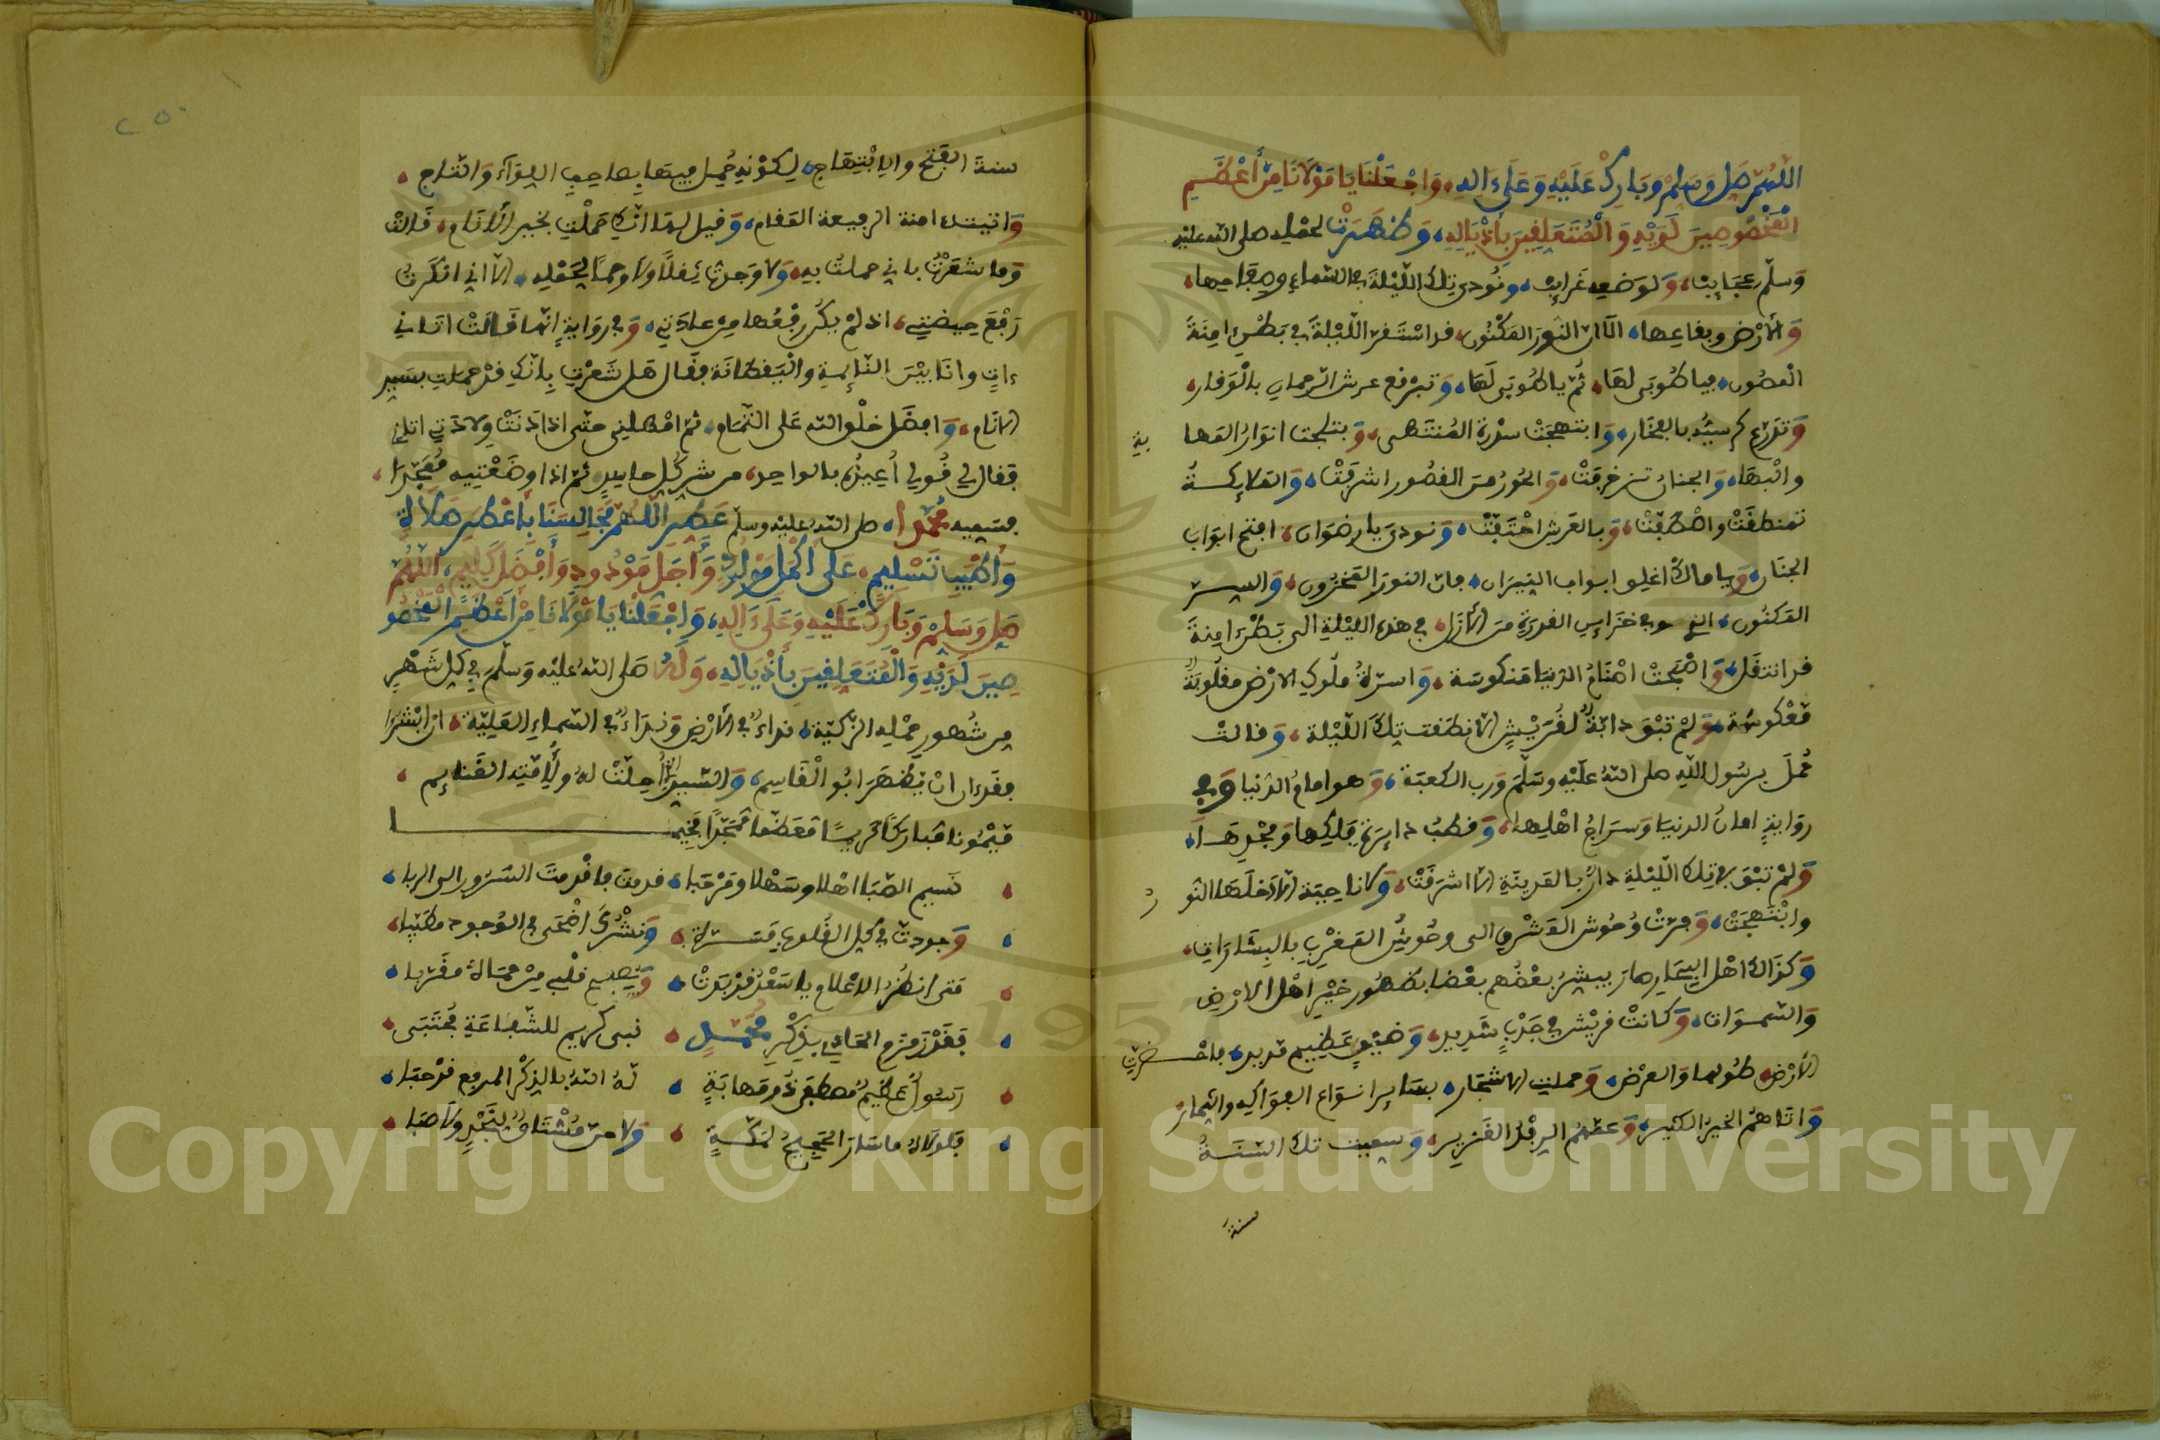 اللّهُمَّ صَلِّ وَسَلِّمْ وَبَارِكْ عَلَيْهِ وَعَلَىٰ ءَالِهِ، وَاجْعَلْنَا يَا مَوْلَانَا مِنْ أَعْظَمِ
الْمَخْصُوصِينَ لَدَيْهِ وَالْمُتَعَلِّقِينَ بِأَذْيَالِهِ، وَظَهَرَتْ لحمْلِه صلى الله عليه
وَسلّم عجَايِبٌ، وَلوَضعِهِ غَرايبٌ، ونُودي تلك اللّيْلةَ في السّماءِ وصِفاحِها،
وَالأرْضِ وبقاعِها، ألا ان النّورَ المَكْنُون، قد اسْتَقرّ اللّيْلةَ في بَطْنِ ءامِنَةَ
المصُون، فيا طُوبَى لهَا، ثُمّ يا طُوبَى لَهَا، وَترفع عرش الرحمان بالْوَقار،
وَتدَرّع كرسيُّه بالفخَار، وَابتهجَتْ سدْرة المُنتهى، وَتبلّجت انوَارُ البَها
ية
والْبهَاء، وَالجنانُ تزخرفَتْ، وَالحُورُ مِنَ القصُور اشرفَتْ، وَالملايكةُ
تمنطقَتْ واصْطفّتْ، وَبالعَرش احْتَفّتْ، وَنودي يا رضوَان، افتح ابوَاب
الجنَان، وَيا مالك اغلق ابواب النّيرَان، فإن النور المخزُون، وَالسرّ
المَكنُون، الذي هو في خزَاينِ القدرَةِ منَ الأزل، في هذه الليْلةِ الى بَطْنِ ءامِنةَ
قد انتقَل، وَاصْبحَتْ اصْنَامُ الدّنيَا مَنكوسَة، وَاسرّةُ ملُوكِ الأرْضِ مقلُوبَةً
مَعْكوسَة، وَلمْ تبْقَ دابّةٌ لقُرَيْشٍ الّا نطَقتْ تِلكَ اللّيْلة، وَقالتْ
حُملَ برسُول اللّهِ صلى اللهُ علَيْهِ وسَلّمَ وَرب الكعبَة، وَهو امام الدّنيا وَفي
روَايةٍ امانُ الدنيَا وَسرَاجُ اهْلِها، وَقطبُ دايرَةِ فلكِها وَمجْدِهَا،
وَلمْ تبْقَ في تِلكَ اللّيْلةِ دارٌ بالمَدينةِ الّا اشرَقَتْ، وَلا ناحِيَة الّا دَخلَهَا النّو
رُ
وابْتَهجَتْ، وَمرّتْ وُحُوش المَشْرقِ الى وحُوشُ المَغْرِبِ بالبشَارَات،
وَكذالك اهْل البحَار صار يبشرُ بعْضُهم بعْضا بظهُور خيْر اهْل الارْض
وَالسّموَات، وَكَانتْ قريْش في جَدْبٍ شَدِيد، وَضيْقٍ عَظِيمٍ مديد، فاخْضرّت
الأرْض طُولها وَالعرْض، وَحملت الاشْجَار، بساير انوَاع الفوَاكِهِ والثّمارْ
وَاتَاهُمُ الخيْرُ الكثير، وَعمّهُم الرفدُ الغَزِير، وَسميت تلك السّنَةُ
سنةُ
٢٥
سنةَ الفَتحْ والِابْتهَاج، لِكوْنِهِ حُمِل فيهَا بِصاحِبِ اللِوَآءِ وَالتّاج،
وَاتيت ءامنة الرفيعة المَقام، وَقيل لهَا انّكِ حَملْتِ بخيرِ الأنَام، قَالتْ
وَما شعَرْتُ باني حملتُ به، وَلا وَجدتُ ثِقلًا ولا وحمًا لِحَمْله، الّا اني انْكرْتُ
رَفْعَ حيضتِي، اذ لمْ يكُن رفعُها من عادَتي، وَفي روَايةٍ انّها قَالَتْ اتَاني
ءاتٍ وانَا بيْنَ النّايِمةِ واليَقظانَة فقَال هَل شعَرْتِ بأنّكِ قدْ حملتِ بسَيدِ
الأنَام، وَافضَل خلْق الله علَى التّمَام، ثمّ امْهلني حتّى اذا دَنتْ وِلادَتي اتاني
فقال لي قُولي اُعِيذُه بالواحِد، من شرّ كُلِّ حاسدٍ ثمّ اذا وضَعْتِيهِ مُمَجّدَا،
فسمِّيهِ مُحمّدا، صلى اللهُ عليْهِ وسلّم عَطِّرِ اللّهُمَّ مَجَالِسَنَا بِأَعْطَرِ صَلَاةٍ
وَأَطْيَبِ تَسْلِيمٍ، عَلَى أَكْمَلِ مَوْلُودٍ وَأَجَلِّ مَوْدُودٍ وَأَفْضَلِ كَلِيمٍ، اللّهُمَّ
صَلِّ وَسَلِّمْ وَبَارِكْ عَلَيْهِ وَعَلَىٰ ءَالِهِ، وَاجْعَلْنَا يَا مَوْلَانَا مِنْ أَعْظَمِ الْمَخْصُو
صِينَ لَدَيْهِ وَالْمُتَعَلِّقِينَ بِأَذْيَالِهِ، وَلَهُ صَلى اللهُ عليْه وَسلّمَ في كلِّ شَهْرٍ
مِن شُهورِ حمْلِهِ الزّكيّة، نداءٌ في الأرْضِ وَنِدَاءٌ في السّماءِ العَليّة، ان ابْشرُوا
فقَد ءانَ انْ يَظْهَرَ ابُو الْقَاسِم، وَالسّيدُ الذي اُحِلّتْ لهُ ولأُمّتِهِ الغَنايم،
مَيْمُونا مُبارَكًا مُعَظّما مُمَجّدًا فَخِيم
نَسيم الصّبَا اهْلا وسَهْلا ومَرْحَبا، قدمتَ فأقْدمتَ السّرورَ الى الربا،
وَجودتَ في كلِّ القلُوبِ مَسرّة، وَنشْرُكَ اضْحَى في الوُجودِ مطَيّبا،
مَتى انظُرُ الاعْلام يا سَعْدُ قدْ بدَتْ، وَيُصبِح قلْبِي مِنْ حمَاك مقَرّبا،
فقدْ زمزمَ الحَادِي بذِكْرِ مُحَمّدٍ، نبى كريم للشّفاعَةِ مُجْتَبَى،
رَسُولٌ عَظِيمٌ مُصطَفى ذُو مَهابَةٍ، لهُ اللهُ بالذِكْرِ المرفع قدْ حبَا،
فَلوْلاهُ ما سَارَ الحَجِيجُ لمكّةٍ، وَلا حنّ مُشْتَاقٌ لنَجْدٍ ولا صَبَا،
Copyright © King Saud University
1957